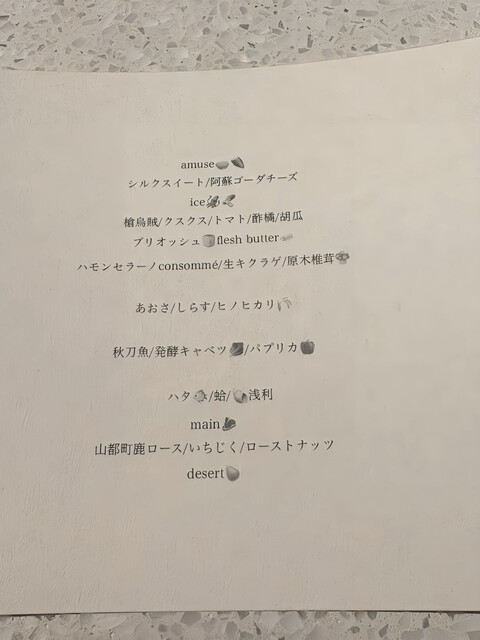 amuse
シルクスイート/阿蘇ゴーダチーズ
ice
槍烏賊/クスクス/トマト/酢橘/胡瓜
ブリオッシュ flesh butter
ハモンセラーノconsommé/生キクラゲ/原木椎茸
あおさ/しらす/ヒノヒカリ
秋刀魚/発酵キャベツ/パプリカ
ハタ/蛤/浅利
main
山都町鹿ロース/いちじく/ローストナッツ
desert